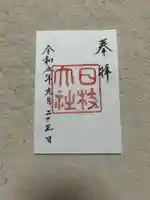 奉拝
日枝
大社
令和五年九月二十五日